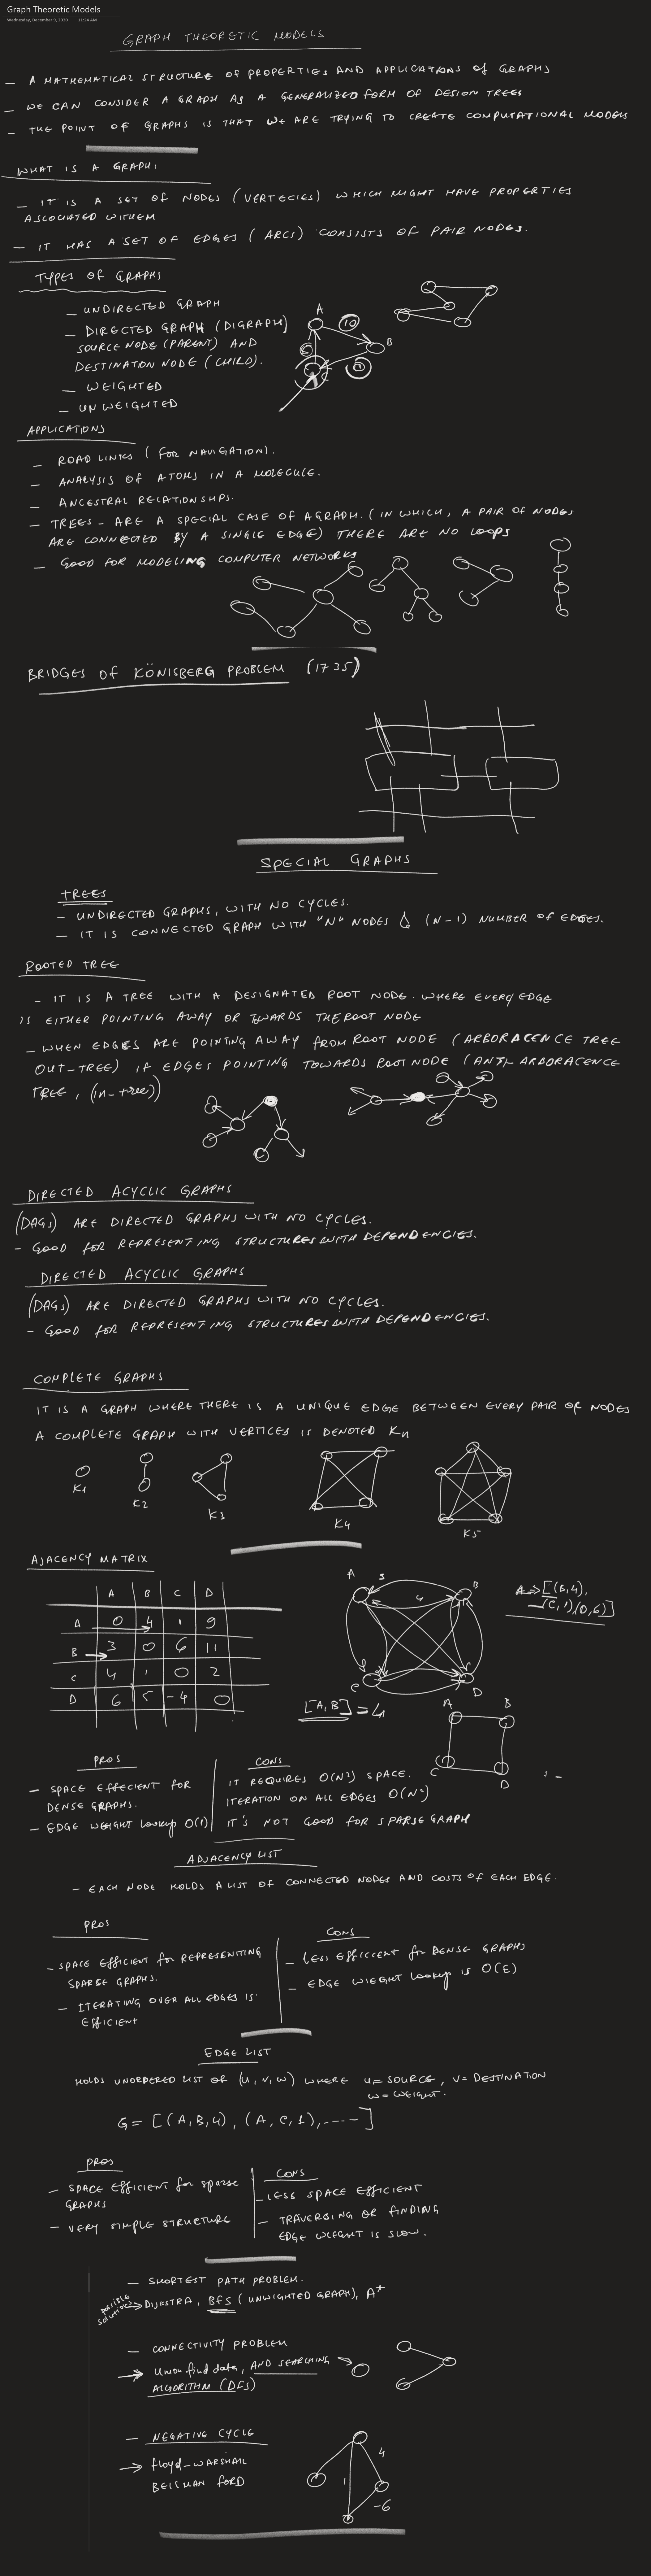 Graph Theoretic Models
Wednesday, December 9, 2020 11:24 AM
GRAPH THEORETIC MODELS
- A MATHEMATICAL STRUCTURE OF PROPERTIES AND APPLICATIONS OF GRAPHS
- WE CAN CONSIDER A GRAPH AS A GENERALIZED FORM OF DESIGN TREES
- THE POINT OF GRAPHS IS THAT WE ARE TRYING TO CREATE COMPUTATIONAL MODELS
WHAT IS A GRAPH:
- IT IS A SET OF NODES (VERTECIES) WHICH MIGHT HAVE PROPERTIES
ASSOCIATED WITHEM
- IT HAS A SET OF EDGES (ARCS) CONSISTS OF PAIR NODES.
TYPES OF GRAPHS
- UNDIRECTED GRAPH
- DIRECTED GRAPH (DIGRAPH)
SOURCE NODE (PARENT) AND
DESTINATION NODE (CHILD).
- WEIGHTED
- UNWEIGHTED
A
10
B
APPLICATIONS
- ROAD LINKS (FOR NAVIGATION).
- ANALYSIS OF ATOMS IN A MOLECULE.
- ANCESTRAL RELATIONSHIPS.
- TREES - ARE A SPECIAL CASE OF A GRAPH. (IN WHICH, A PAIR OF NODES
ARE CONNECTED BY A SINGLE EDGE) THERE ARE NO LOOPS
- GOOD FOR MODELING COMPUTER NETWORKS
BRIDGES OF KÖNISBERG PROBLEM (1735)
SPECIAL GRAPHS
TREES
- UNDIRECTED GRAPHS, WITH NO CYCLES.
- IT IS CONNECTED GRAPH WITH "N" NODES & (N-1) NUMBER OF EDGES.
ROOTED TREE
- IT IS A TREE WITH A DESIGNATED ROOT NODE. WHERE EVERY EDGE
IS EITHER POINTING AWAY OR TOWARDS THE ROOT NODE
- WHEN EDGES ARE POINTING AWAY FROM ROOT NODE (ARBORACENCE TREE
OUT-TREE) IF EDGES POINTING TOWARDS ROOT NODE (ANTI-ARBORACENCE
TREE, (in-tree))
DIRECTED ACYCLIC GRAPHS
(DAGs) ARE DIRECTED GRAPHS WITH NO CYCLES.
- GOOD FOR REPRESENTING STRUCTURES WITH DEPENDENCIES.
DIRECTED ACYCLIC GRAPHS
(DAGs) ARE DIRECTED GRAPHS WITH NO CYCLES.
- GOOD FOR REPRESENTING STRUCTURES WITH DEPENDENCIES.
COMPLETE GRAPHS
IT IS A GRAPH WHERE THERE IS A UNIQUE EDGE BETWEEN EVERY PAIR OF NODES
A COMPLETE GRAPH WITH VERTICES IS DENOTED Kn
K1 K2 K3 K4 K5
AJACENCY MATRIX
A B C D
A 0 4 1 9
B 3 0 6 11
C 4 1 0 2
D 6 5 -4 0
A 3 B
4
C D
A => [(B,4),
(C,1),(D,6)]
[A,B] = 4
A B
C D
PROS
- SPACE EFFECIENT FOR
DENSE GRAPHS.
- EDGE WEIGHT LOOKUP O(1)
CONS
IT REQUIRES O(N²) SPACE.
ITERATION ON ALL EDGES O(N²)
IT'S NOT GOOD FOR SPARSE GRAPH
ADJACENCY LIST
- EACH NODE HOLDS A LIST OF CONNECTED NODES AND COSTS OF EACH EDGE.
PROS
- SPACE EFFICIENT FOR REPRESENITING
SPARSE GRAPHS.
- ITERATING OVER ALL EDGES IS
EFFICIENT
CONS
- LESS EFFICCENT FOR DENSE GRAPHS
- EDGE WIEGHT LOOKUP IS O(E)
EDGE LIST
HOLDS UNORDERED LIST OF (U, V, W) WHERE U = SOURCE, V = DESTINATION
W = WEIGHT.
G = [(A,B,4), (A,C,1), ----]
PROS
- SPACE EFFICIENT for sparse
GRAPHS
- VERY SIMPLE STRUCTURE
CONS
- LESS SPACE EFFICIENT
- TRAVERSING OR FINDING
EDGE WEIGHT IS SLOW.
- SHORTEST PATH PROBLEM.
possible
solutions → DIJKSTRA, BFS (UNWIGHTED GRAPH), A*
- CONNECTIVITY PROBLEM
→ Union find data, AND SEARCHING
ALGORITHM (DFS)
- NEGATIVE CYCLE
→ floyd-WARSHALL
BELLMAN FORD
4
1
-6